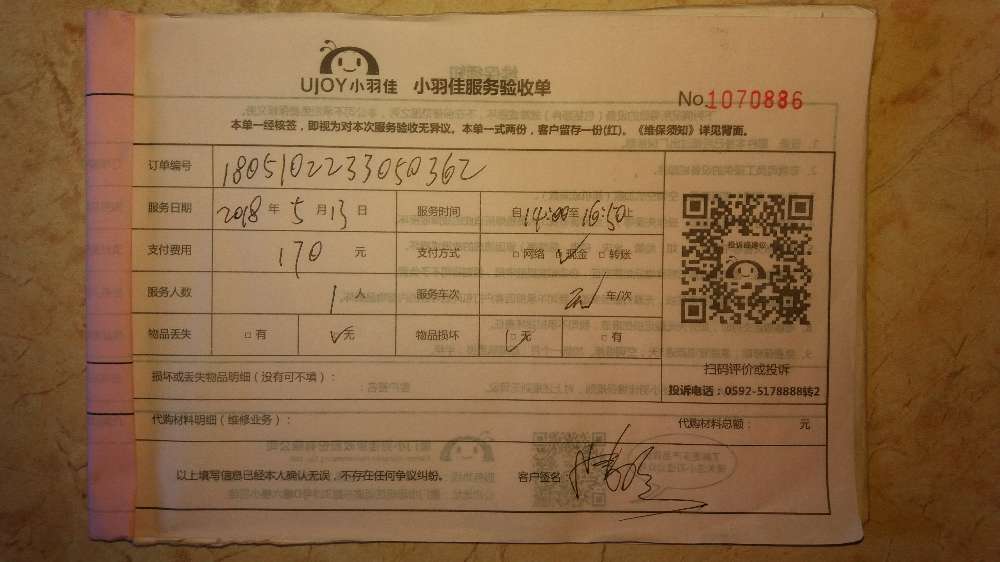 UJOY小羽佳 小羽佳服务验收单
No.1070836
本单一经核签，即视为对本次服务验收无异议。本单一式两份，客户留存一份(红)。《维保须知》详见背面。
订单编号 1805102233050362
服务日期 2018年5月13日 服务时间 自14:00至16:50止
支付费用 170元 支付方式 □网络 ☑现金 □转账
服务人数 1人 服务车次 车/次
物品丢失 □有 ☑无 物品损坏 ☑无 □有
投诉或建议
扫码评价或投诉
投诉电话：0592-5178888转2
损坏或丢失物品明细（没有可不填）：
代购材料明细（维修业务）： 代购材料总额： 元
以上填写信息已经本人确认无误，不存在任何争议纠纷。 客户签名：